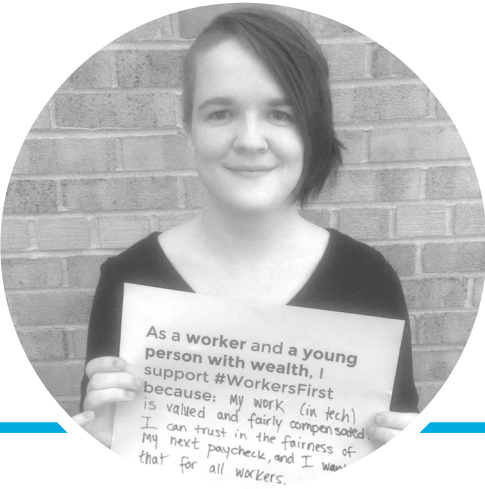 As a worker and a young
person with wealth, I
support #WorkersFirst
because: My work (in tech)
is valued and fairly compensated.
I can trust in the fairness of
My next paycheck, and I want
that for all workers.